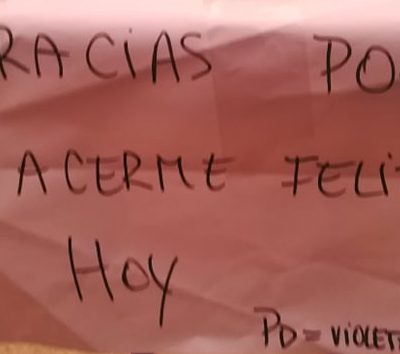 RACIAS PO
ACERME FELI
HOY
PD = VIOLET